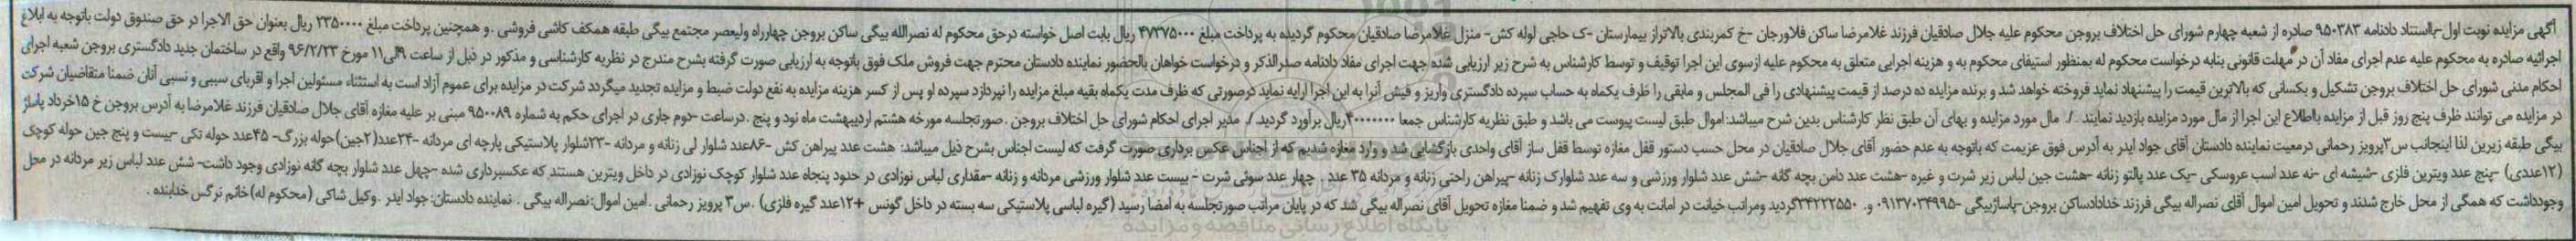 آگهی مزایده نوبت اول-بااستناد دادنامه ۹۵۰۳۸۳ صادره از شعبه چهارم شورای حل اختلاف بروجن محکوم علیه جلال صادقیان فرزند غلامرضا ساکن فلاورجان -خ کمربندی بالاتراز بیمارستان -ک حاجی لوله کش- منزل غلامرضا صادقیان محکوم گردیده به پرداخت مبلغ ۴۷۳۷۵۰۰۰ ریال بابت اصل خواسته درحق محکوم له نصرالله بیگی ساکن بروجن چهارراه ولیعصر مجتمع بیگی طبقه همکف کاشی فروشی .و همچنین پرداخت مبلغ ۲۳۵۰۰۰۰ ریال بعنوان حق الاجرا در حق صندوق دولت باتوجه به ابلاغ
اجرائیه صادره به محکوم علیه عدم اجرای مفاد آن در مهلت قانونی بنابه درخواست محکوم له بمنظور استیفای محکوم به و هزینه اجرایی متعلق به محکوم علیه ازسوی این اجرا توقیف و توسط کارشناس به شرح زیر ارزیابی شده جهت اجرای مفاد دادنامه صدرالذکر و درخواست خواهان بالحضور نماینده دادستان محترم جهت فروش ملک فوق باتوجه به ارزیابی صورت گرفته بشرح مندرج در نظریه کارشناسی و مذکور در ذیل از ساعت ۹الی۱۱ مورخ ۹۶/۲/۲۳ واقع در ساختمان جدید دادگستری بروجن شعبه اجرای
احکام مدنی شورای حل اختلاف بروجن تشکیل و بکسانی که بالاترین قیمت را پیشنهاد نماید فروخته خواهد شد و برنده مزایده ده درصد از قیمت پیشنهادی را فی المجلس و مابقی را ظرف یکماه به حساب سپرده دادگستری واریز و فیش آنرا به این اجرا ارایه نماید درصورتی که ظرف مدت یکماه بقیه مبلغ مزایده را نپردازد سپرده او پس از کسر هزینه مزایده به نفع دولت ضبط و مزایده تجدید میگردد شرکت در مزایده برای عموم آزاد است به استثناء مسئولین اجرا و اقربای سببی و نسبی آنان ضمنا متقاضیان شرکت
در مزایده می توانند ظرف پنج روز قبل از مزایده بااطلاع این اجرا از مال مورد مزایده بازدید نمایند ./. مال مورد مزایده و بهای آن طبق نظر کارشناس بدین شرح میباشد:اموال طبق لیست پیوست می باشد و طبق نظریه کارشناس جمعا ۴۰۰۰۰۰۰۰ریال برآورد گردید ./. مدیر اجرای احکام شورای حل اختلاف بروجن .صورتجلسه مورخه هشتم اردیبهشت ماه نود و پنج .درساعت -دوم جاری در اجرای حکم به شماره ۹۵۰۰۸۹ مبنی بر علیه مغازه آقای جلال صادقیان فرزند غلامرضا به آدرس بروجن خ ۱۵خرداد پاساژ
بیگی طبقه زیرین لذا اینجانب س۳پرویز رحمانی درمعیت نماینده دادستان آقای جواد ایدر به آدرس فوق عزیمت که باتوجه به عدم حضور آقای جلال صادقیان در محل حسب دستور قفل مغازه توسط قفل ساز آقای واحدی بازگشایی شد و وارد مغازه شدیم که از اجناس عکس برداری صورت گرفت که لیست اجناس بشرح ذیل میباشد: هشت عدد پیراهن کش -۸۶عدد شلوار لی زنانه و مردانه -۲۳شلوار پلاستیکی پارچه ای مردانه -۲۴عدد(۲جین)حوله بزرگ- ۴۵عدد حوله تکی -بیست و پنج جین حوله کوچک
(۱۲عددی) -پنج عدد ویترین فلزی -شیشه ای -نه عدد اسب عروسکی -یک عدد پالتو زنانه -هشت جین لباس زیر شرت و غیره -هشت عدد دامن بچه گانه -شش عدد شلوار ورزشی و سه عدد شلوارک زنانه -پیراهن راحتی زنانه و مردانه ۳۵ عدد . چهار عدد سوئی شرت - بیست عدد شلوار ورزشی مردانه و زنانه -مقداری لباس نوزادی در حدود پنجاه عدد شلوار کوچک نوزادی در داخل ویترین هستند که عکسبرداری شده -چهل عدد شلوار بچه گانه نوزادی وجود داشت- شش عدد لباس زیر مردانه در محل
وجودداشت که همگی از محل خارج شدند و تحویل امین اموال آقای نصراله بیگی فرزند خدادادساکن بروجن-پاساژبیگی -۰۹۱۳۷۰۳۴۹۹۵ و. ۳۴۲۲۲۵۵۰گردید ومراتب خیانت در امانت به وی تفهیم شد و ضمنا مغازه تحویل آقای نصراله بیگی شد که در پایان مراتب صورتجلسه به امضا رسید (گیره لباسی پلاستیکی سه بسته در داخل گونس +۱۲عدد گیره فلزی) .س۳ پرویز رحمانی .امین اموال:نصراله بیگی . نماینده دادستان: جواد ایدر .وکیل شاکی (محکوم له)خانم نرگس خدابنده .
پایگاه اطلاع رسانی مناقصه و مزایده